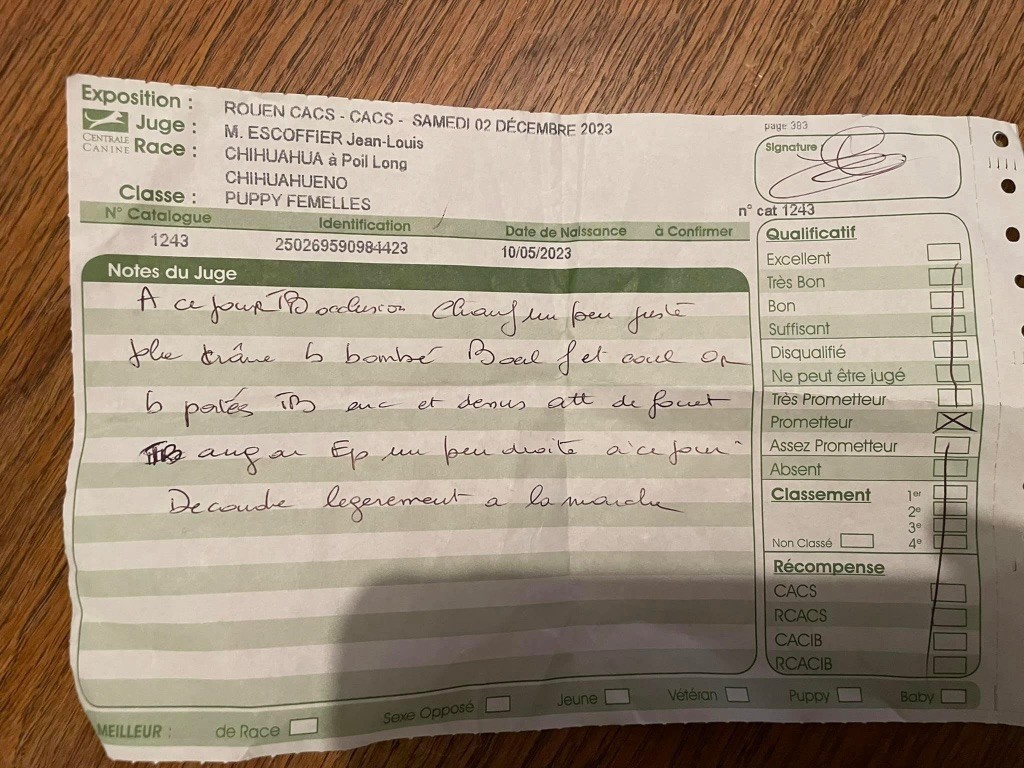 Exposition : ROUEN CACS - CACS - SAMEDI 02 DÉCEMBRE 2023
CENTRALE CANINE
Juge : M. ESCOFFIER Jean-Louis
Race : CHIHUAHUA à Poil Long
CHIHUAHUENO
Classe : PUPPY FEMELLES
page 383
Signature :
n° cat 1243
N° Catalogue Identification Date de Naissance à Confirmer
1243 250269590984423 10/05/2023
Notes du Juge
A ce jour TB occlusion Chanf un peu juste
Jolie crâne b bombé B oeil f et coul or
b portés TB enc et dessus att de fouet
TB ang ar Ep un peu droite à ce jour
Decoude legerement a la marche
Qualificatif
Excellent
Très Bon
Bon
Suffisant
Disqualifié
Ne peut être jugé
Très Prometteur
Prometteur
Assez Prometteur
Absent
Classement 1er
2e
3e
Non Classé 4e
Récompense
CACS
RCACS
CACIB
RCACIB
MEILLEUR : de Race Sexe Opposé Jeune Vétéran Puppy Baby